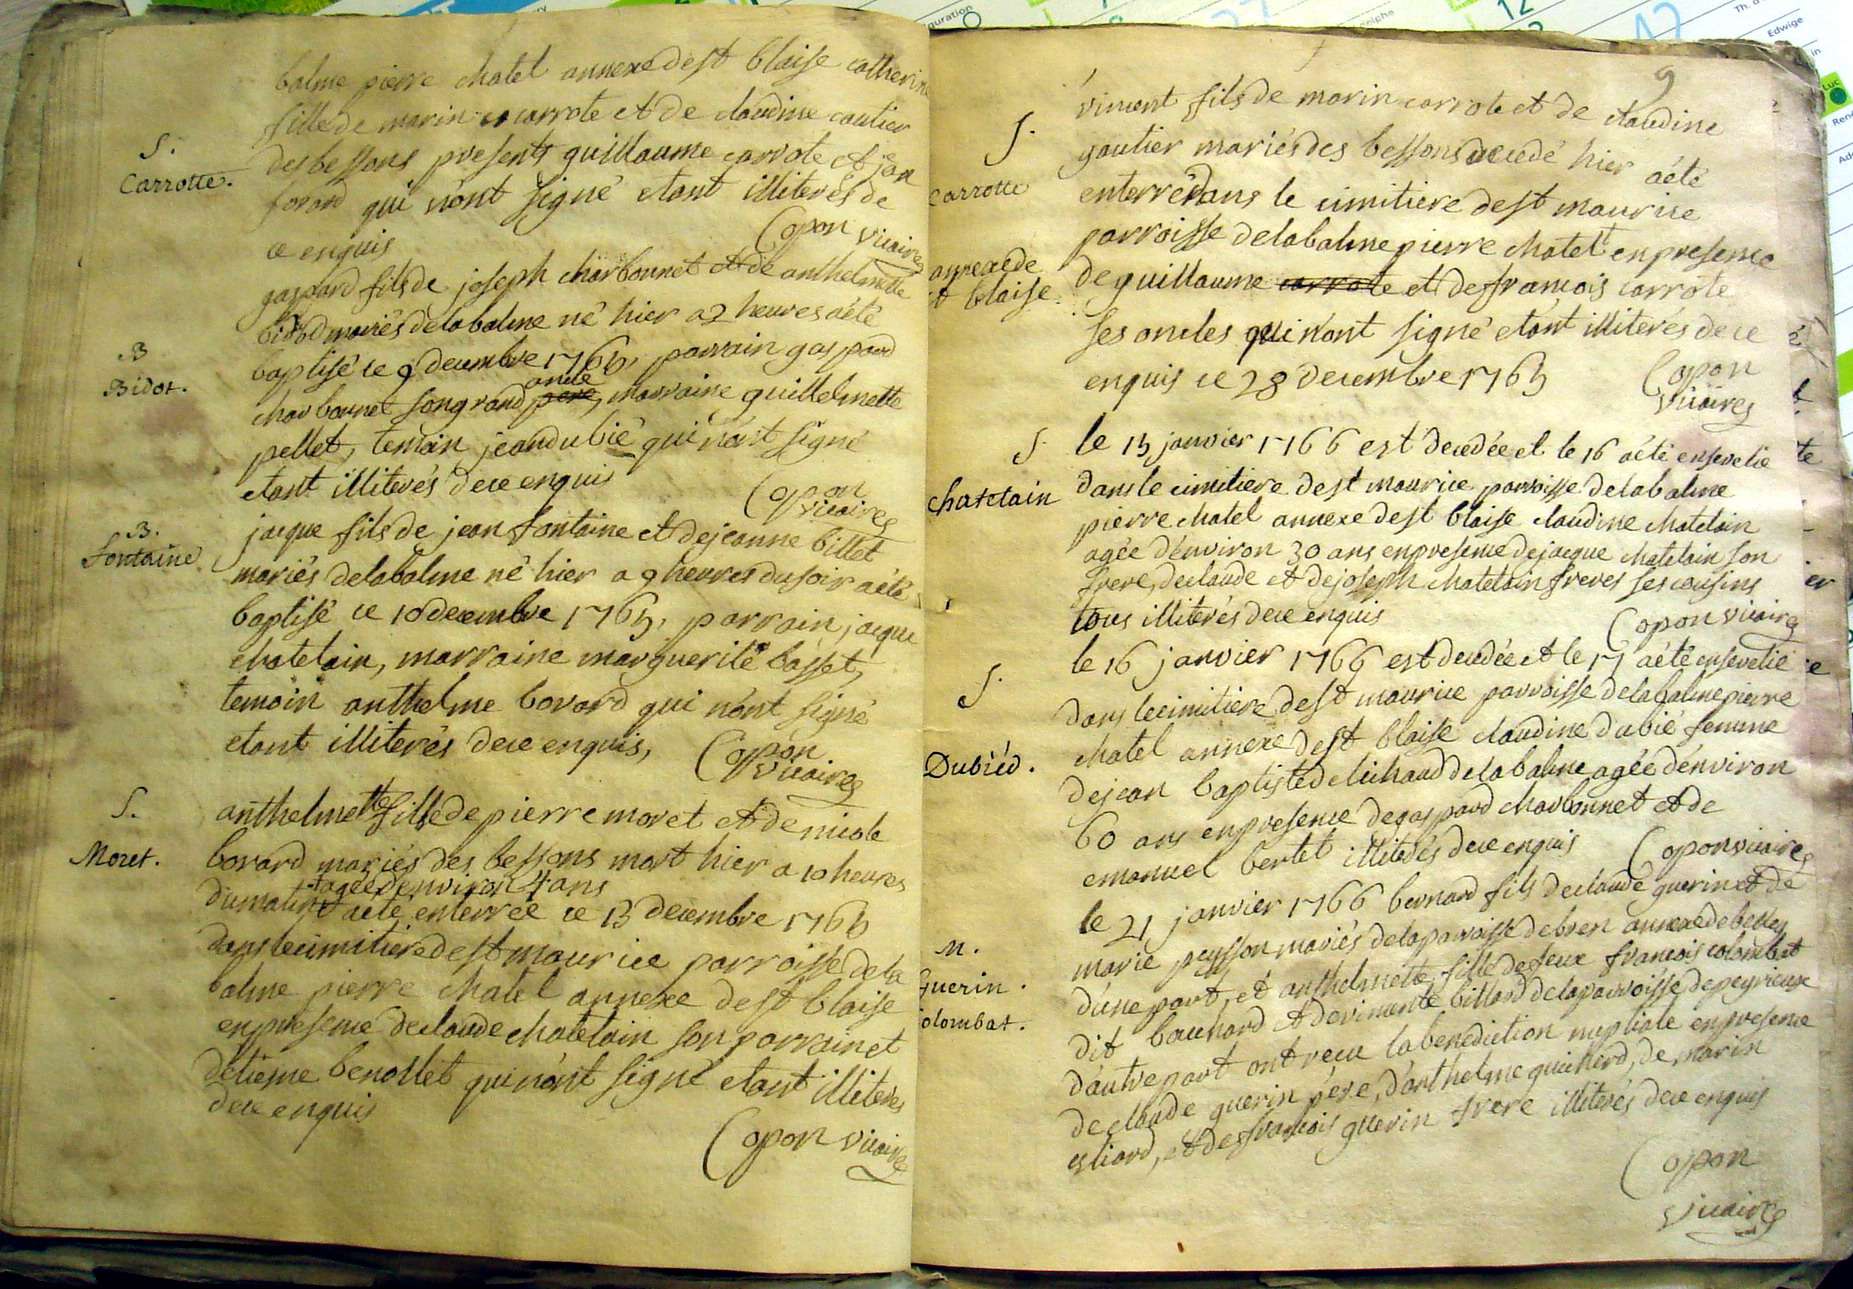 balme pierre chatel annexe de st blaise catherine
fille de marin carrote et de claudine cautier
S.
des bessons presents guillaume carrote et jan
Carrotte.
qui n'ont signé etant illiterés de
ce enquis
Copon vicaire
gaspard fils de joseph charbonnet et de anthelmette
bidod mariés de la balme né hier a 2 heures a été
B
baptisé ce 9 decembre 1765, parrain gaspard
Bidot.
oncle
charbonnet son grand pere, marraine guillelmette
pellet, temoin jean dubié qui n'ont signé
etant illiterés de ce enquis
Copon
vicaire
B.
jacque fils de jean fontaine et de jeanne billet
fontaine
mariés de la balme né hier a 9 heures du soir a été
baptisé ce 10 decembre 1765, parrain jacque
chatelain, marraine marguerite basset,
temoin anthelme bovard qui n'ont signé
etant illiterés de ce enquis,
Copon
vicaire
S.
anthelmette fille de pierre moret et de nicole
Moret.
bovard mariés des bessons mort hier a 10 heures
agée d'environ 4 ans
du matin a été enterrée ce 13 decembre 1765
dans le cimitiere de st maurice parroisse de la
balme pierre chatel annexe de st blaise
en presence de claude chatelain son parrain et
d'etieñe benollet qui n'ont signé etant illiterés
de ce enquis
Copon vicaire
9
vincent fils de marin carrote et de claudine
S.
gautier mariés des bessons decedé hier a été
carrotte
enterré dans le cimitiere de st maurice
parroisse de la balme pierre chatel en presence
annexe de
st blaise.
de guillaume carrote et de francois carrote
ses oncles qui n'ont signé etant illiterés de ce
enquis ce 28 decembre 1765
Copon
vicaire
S.
le 15 janvier 1766 est decedée et le 16 a été ensevelie
chatelain
dans le cimitiere de st maurice parroisse de la balme
pierre chatel annexe de st blaise claudine chatelain
agée d'environ 30 ans en presence de jacque chatelain son
frere, de claude et de joseph chatelain freres ses cousins
tous illiterés de ce enquis
Copon vicaire
S.
le 16 janvier 1766 est decedée et le 17 a été ensevelie
dans le cimitiere de st maurice parroisse de la balme pierre
chatel annexe de st blaise claudine dubié femme
Dubiéd.
de jean baptiste de la balme agée d'environ
60 ans en presence de gaspard charbonnet et de
emanuel bertet illiterés de ce enquis
Copon vicaire
le 21 janvier 1766 bernard fils de claude guerin et de
M.
marie peysson mariés de la parroisse de bren annexe de belley
Guerin.
d'une part, et anthelmette fille de feu francois colombat
Colombat.
dit bauchard et de vimente billard de la parroisse de peyrieux
d'autre part ont recu la benediction nuptiale en presence
de claude guerin pere, d'anthelme guicherd, de marin
et de francois guerin frere illiterés de ce enquis
Copon
vicaire